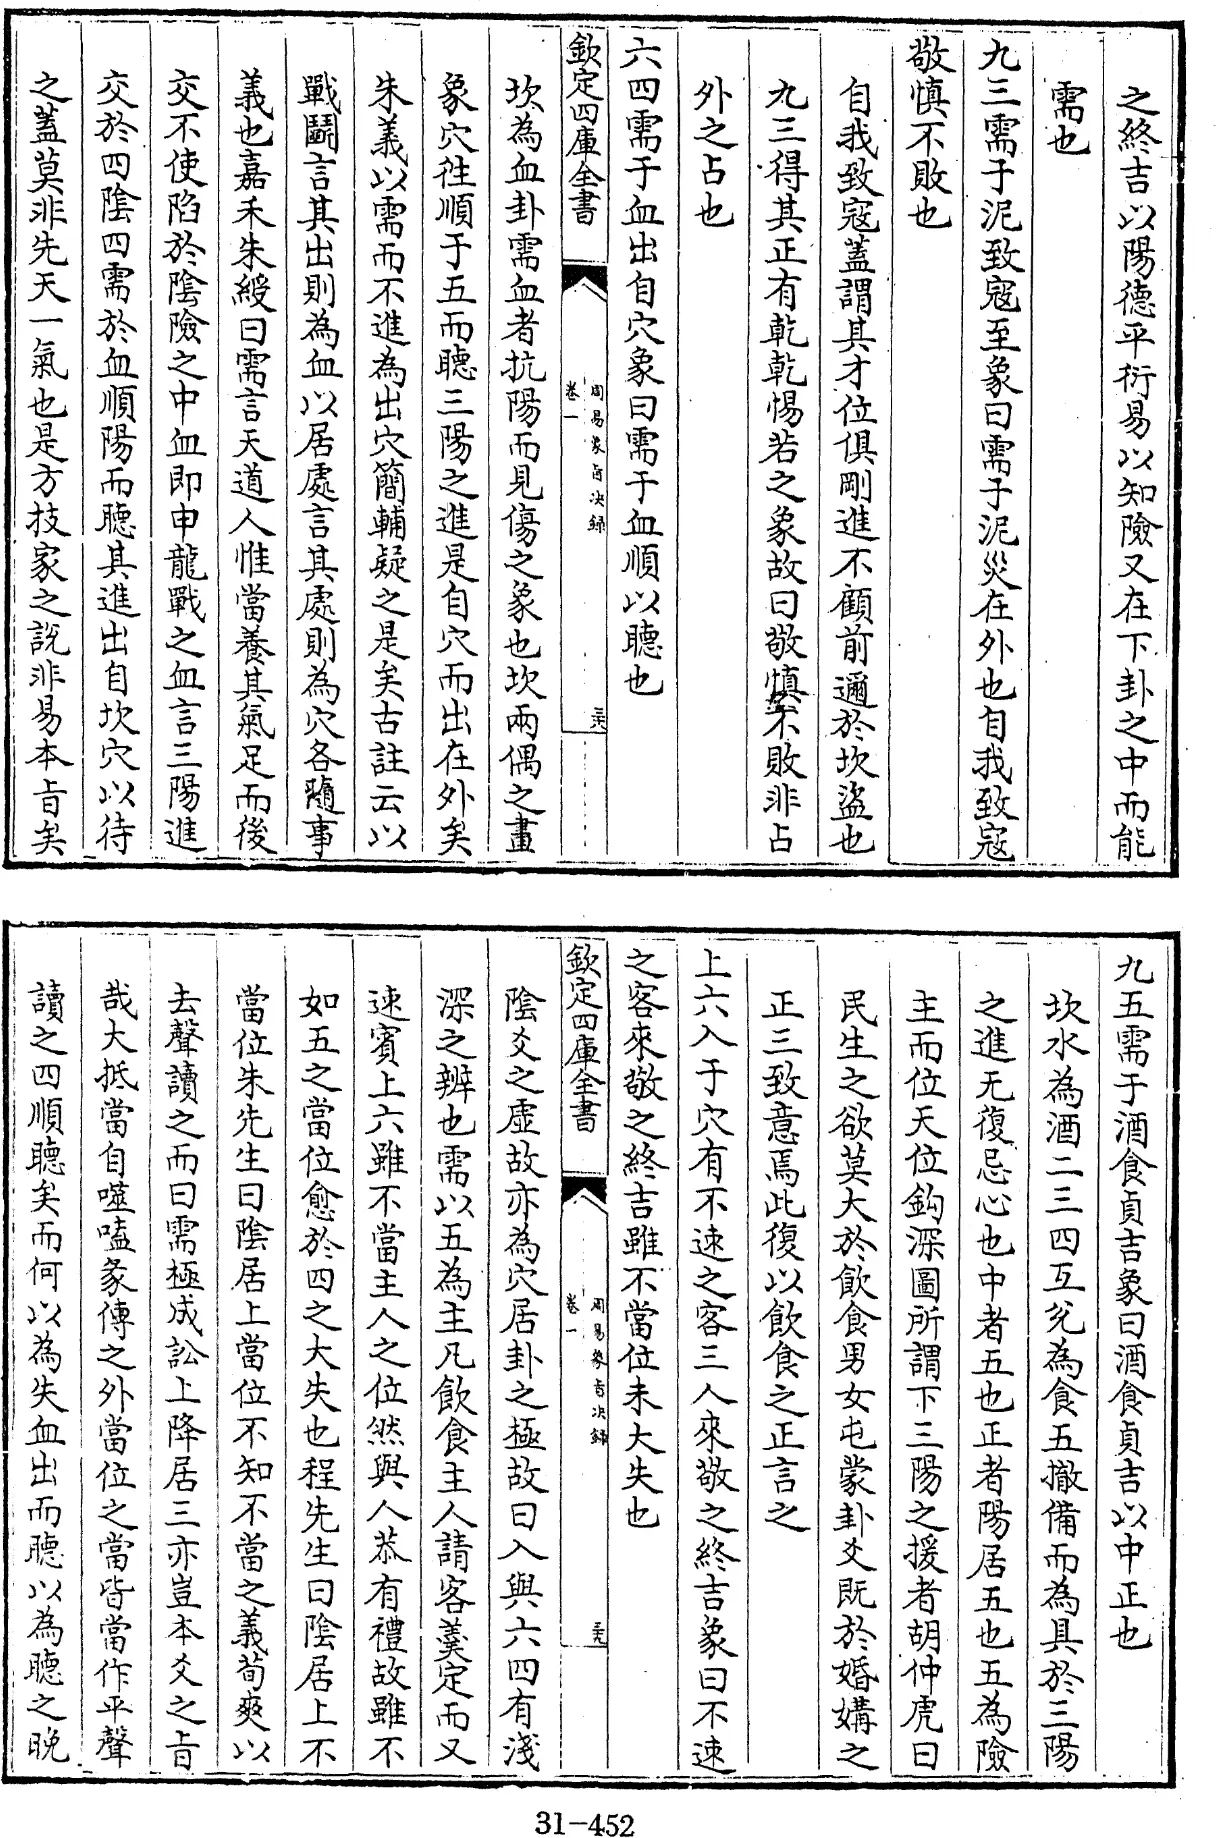 之終吉以陽德平衍易以知險又在下卦之中而能
需也
九三需于泥致寇至象曰需于泥災在外也自我致寇
敬慎不敗也
自我致寇蓋謂其才位俱剛進不顧前邇於坎盜也
九三得其正有乾乾惕若之象故曰敬慎不敗非占
外之占也
六四需于血出自穴象曰需于血順以聽也
欽定四庫全書
周易象旨決録
卷一
坎為血卦需血者抗陽而見傷之象也坎兩偶之畫
象穴徃順于五而聽三陽之進是自穴而出在外矣
朱義以需而不進為出穴簡輔疑之是矣古註云以
戰鬭言其出則為血以居處言其處則為穴各隨事
義也嘉禾朱綬曰需言天道人惟當養其氣足而後
交不使陷於陰險之中血即申龍戰之血言三陽進
交於四陰四需於血順陽而聽其進出自坎穴以待
之蓋莫非先天一氣也是方技家之說非易本旨矣
九五需于酒食貞吉象曰酒食貞吉以中正也
坎水為酒二三四互兊為食五撤備而為具於三陽
之進无復忌心也中者五也正者陽居五也五為險
主而位天位鈎深圖所謂下三陽之援者胡仲虎曰
民生之欲莫大於飲食男女屯蒙卦爻既於婚媾之
正三致意焉此復以飲食之正言之
上六入于穴有不速之客三人來敬之終吉象曰不速
之客來敬之終吉雖不當位未大失也
欽定四庫全書
周易象旨決録
卷一
陰爻之虛故亦為穴居卦之極故曰入與六四有淺
深之辨也需以五為主凡飲食主人請客羹定而又
速賓上六雖不當主人之位然與人恭有禮故雖不
如五之當位愈於四之大失也程先生曰陰居上不
當位朱先生曰陰居上當位不知不當之義荀爽以
去聲讀之而曰需極成訟上降居三亦豈本爻之旨
哉大抵當自噬嗑彖傳之外當位之當皆當作平聲
讀之四順聽矣而何以為失血出而聽以為聽之晚
31-452